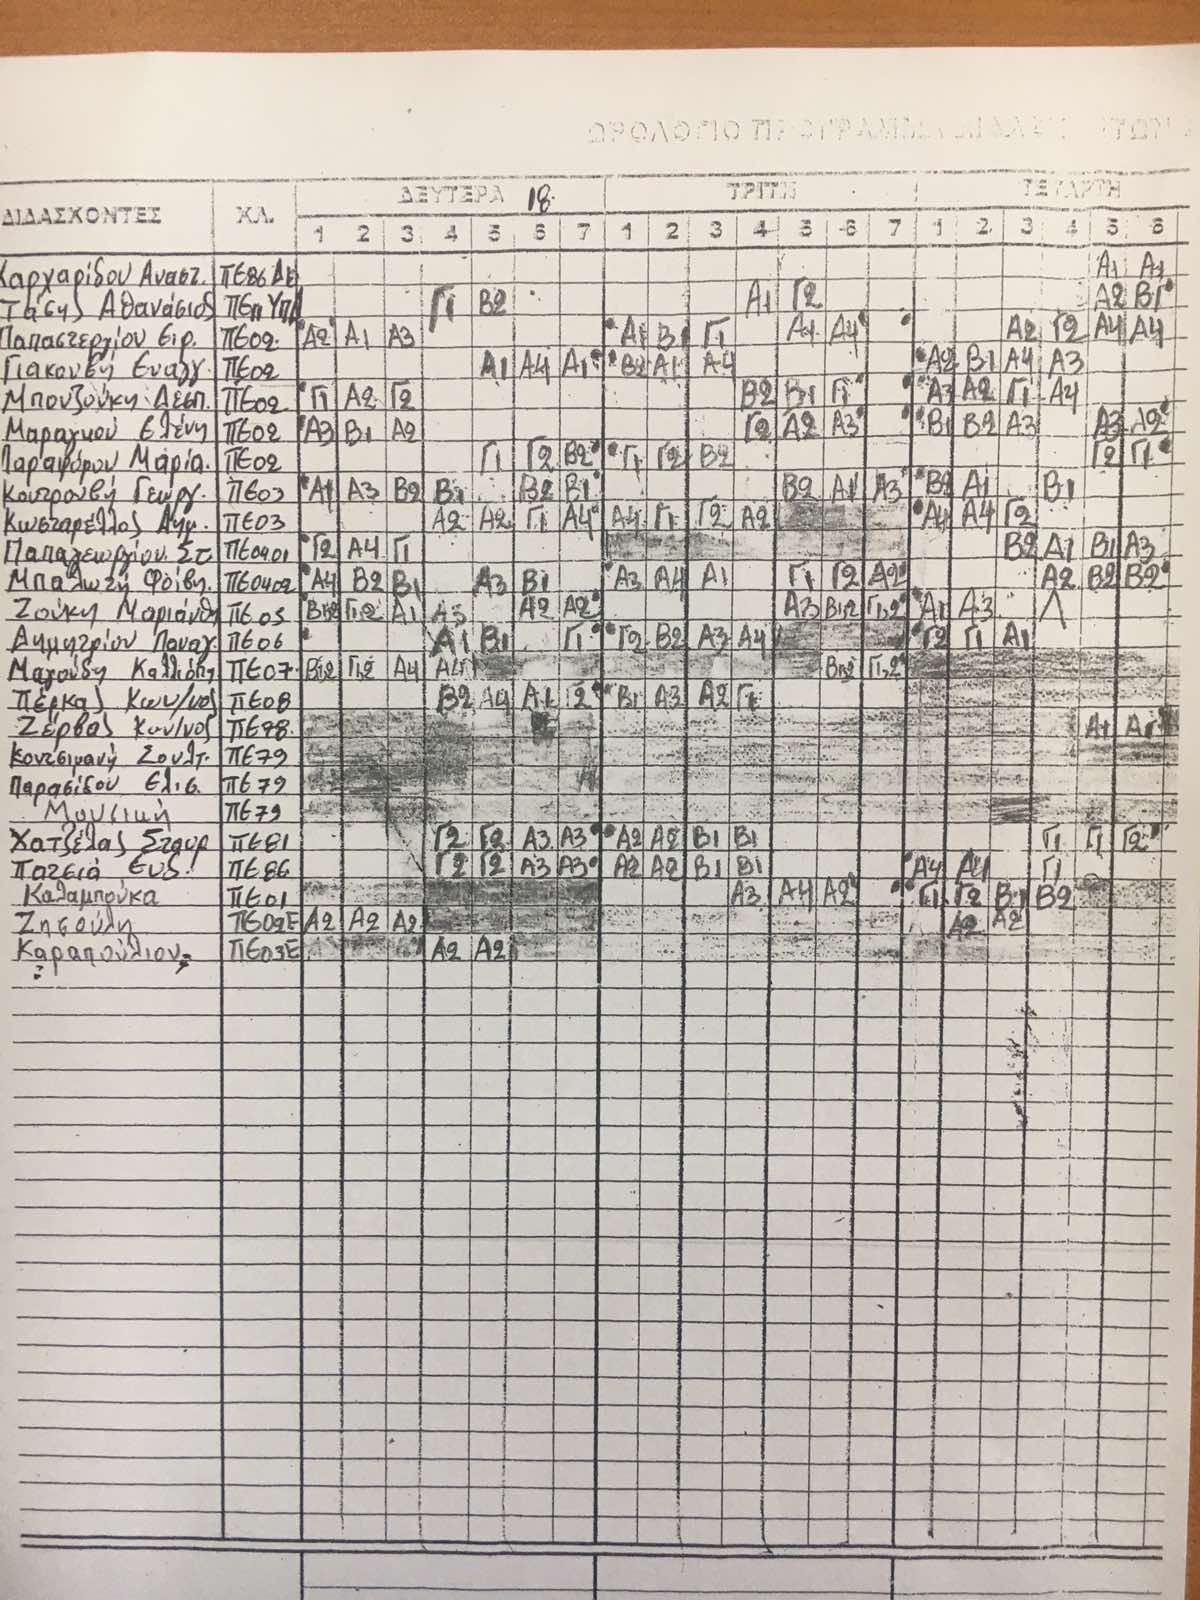 ΩΡΟΛΟΓΙΟ
ΔΙΔΑΣΚΟΝΤΕΣ ΚΛ. ΔΕΥΤΕΡΑ 18 ΤΡΙΤΗ ΤΕΤΑΡΤΗ
1 2 3 4 5 6 7 1 2 3 4 5 6 7 1 2 3 4 5 6
Καρχαρίδου Αναστ. ΠΕ86 Α1 Α1
Τάσης Αθανάσιος Γ1 Β2 Α1 Γ2 Α2 Β1
Παπαστεργίου Ειρ. ΠΕ02 Α2 Α1 Α3 Α1 Β1 Γ1 Α4 Α4 Α2 Γ2 Α4 Α4
Γιακουβή Ευαγγ. ΠΕ02 Α1 Α4 Α1 Β2 Α1 Α4 Α2 Β1 Α4 Α3
Μπουζούκη Δεσπ. ΠΕ02 Γ1 Α2 Γ2 Β2 Β1 Γ1 Α3 Α2 Γ1 Α4
Μαραγκού Ελένη ΠΕ02 Α3 Β1 Α2 Γ2 Α2 Α3 Β1 Β2 Α3 Α3 Α2
Μαρία ΠΕ02 Γ1 Γ2 Β2 Γ1 Γ2 Β2 Γ2 Γ1
Κουτρουβή Γεωργ. ΠΕ03 Α1 Α3 Β2 Β1 Β2 Β1 Β2 Α1 Α3 Β2 Α1 Β1
Κωσταρέλλος Δημ. ΠΕ03 Α2 Α2 Γ1 Α4 Α4 Γ1 Γ2 Α2 Α4 Α4 Γ2
Παπαγεωργίου Στ ΠΕ0401 Γ2 Α4 Γ1 Β2 Α1 Β1 Α3
Μπαλωτή Φοίβη ΠΕ0402 Α4 Β2 Β1 Α3 Β1 Α3 Α4 Α1 Γ1 Γ2 Α2 Α2 Β2 Β2
Ζούκη Μαριάνθη ΠΕ05 Β12 Γ1,2 Α1 Α3 Α2 Α2 Α3 Β1,2 Γ1,2 Α1 Α3 Λ
Δημητρίου Παναγ. ΠΕ06 Α1 Β1 Γ1 Γ2 Β2 Α3 Α4 Γ2 Γ1 Α1
Μαγούδη Καλλιόπη ΠΕ07 Β12 Γ1,2 Α4 Α4 Β12 Γ1,2
Πέρκας Κων/νος ΠΕ08 Β2 Α4 Α1 Γ2 Β1 Α3 Α2 Γ1
Ζέρβας Κων/νος ΠΕ78 Α1 Α1
Κουτσιμανή Σουλτ. ΠΕ79
Παρασίδου Ελισ. ΠΕ79
Μουσική ΠΕ79
Χατζέλας Σταυρ ΠΕ81 Γ2 Γ2 Α3 Α3 Α2 Α2 Β1 Β1 Γ1 Γ1 Γ2
Πατσιά Ευδ. ΠΕ86 Γ2 Γ2 Α3 Α3 Α2 Α2 Β1 Β1 Α4 Α4 Γ1
Καλαμπούκα ΠΕ01 Α3 Α4 Α2 Γ1 Γ2 Β1 Β2
Ζησούλη ΠΕ02Ε Α2 Α2 Α2 Α2 Α2
Καραπούλιου ΠΕ03Ε Α2 Α2
?